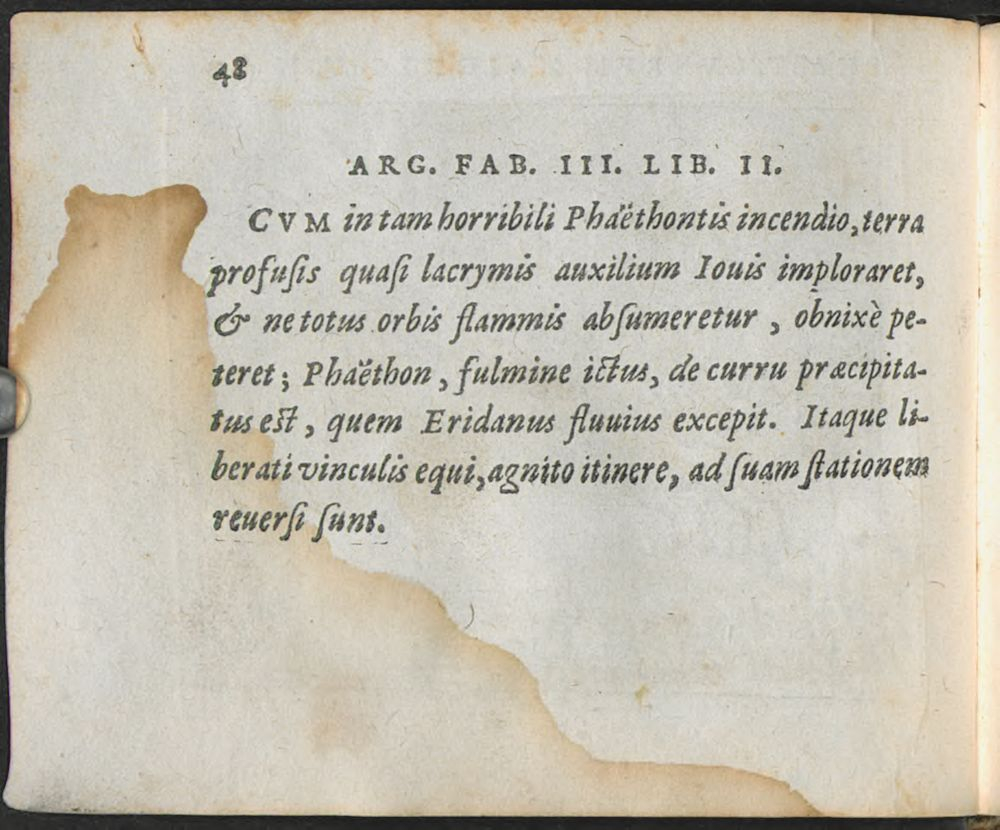 48
ARG. FAB. III. LIB. II.
CVM in tam horribili Phaëthontis incendio, terra
profuſis quaſi lacrymis auxilium Iouis imploraret,
& ne totus orbis flammis abſumeretur, obnixè pe-
teret; Phaëthon, fulmine ictus, de curru præcipita-
tus eſt, quem Eridanus fluuius excepit. Itaque li-
berati vinculis equi, agnito itinere, ad ſuam ſtationem
reuerſi ſunt.